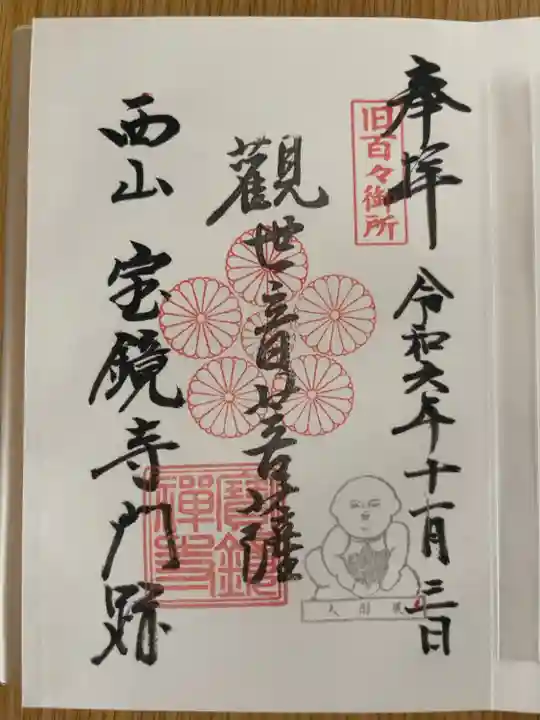 奉拝
旧百々御所
令和六年十一月三日
觀世音菩薩
西山 宝鏡寺門跡
寶鏡
禅寺
人形